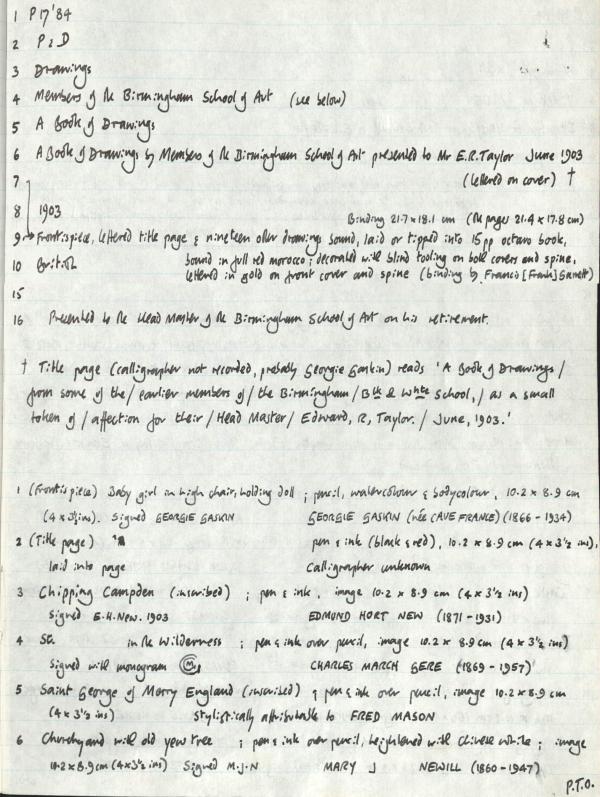 1 P17'84
2 P & D
3 Drawings
4 Members of the Birmingham School of Art (see below)
5 A Book of Drawings
6 A Book of Drawings by Members of the Birmingham School of Art presented to Mr E.R. Taylor June 1903
7 (lettered on cover) †
8 1903 Binding 21.7 x 18.1 cm (the pages 21.4 x 17.8 cm)
9 → Frontispiece, lettered title page & nineteen other drawings bound, laid or tipped into 15pp octavo book,
10 British bound in full red morocco; decorated with blind tooling on both covers and spine,
lettered in gold on front cover and spine (binding by Francis [Frank] Garrett)
15
16 Presented to the Head Master of the Birmingham School of Art on his retirement.
† Title page (calligrapher not recorded, probably Georgie Gaskin) reads 'A Book of Drawings /
from some of the / earlier members of / the Birmingham / Blk & White School, / as a small
token of / affection for their / Head Master / Edward, R, Taylor. / June, 1903.'
1 (Frontispiece) Baby girl in high chair, holding doll ; pencil, watercolour & bodycolour, 10.2 x 8.9 cm
(4 x 3½ ins). Signed GEORGIE GASKIN GEORGIE GASKIN (née CAVE FRANCE) (1866 - 1934)
2 (Title page) pen & ink (black & red), 10.2 x 8.9 cm (4 x 3½ ins),
laid into page Calligrapher unknown
3 Chipping Campden (inscribed) ; pen & ink, image 10.2 x 8.9 cm (4 x 3½ ins)
signed E.H. New. 1903 EDMUND HORT NEW (1871 - 1931)
4 St. in the Wilderness ; pen & ink over pencil, image 10.2 x 8.9 cm (4 x 3½ ins)
Signed with monogram CHARLES MARCH GERE (1869 - 1957)
5 Saint George of Merry England (inscribed) ; pen & ink over pencil, image 10.2 x 8.9 cm
(4 x 3½ ins) stylistically attributable to FRED MASON
6 Churchyard with old yew tree ; pen & ink over pencil, heightened with Chinese white ; image
10.2 x 8.9 cm (4 x 3½ ins) Signed M.J.N MARY J NEWILL (1860 - 1947)
P.T.O.